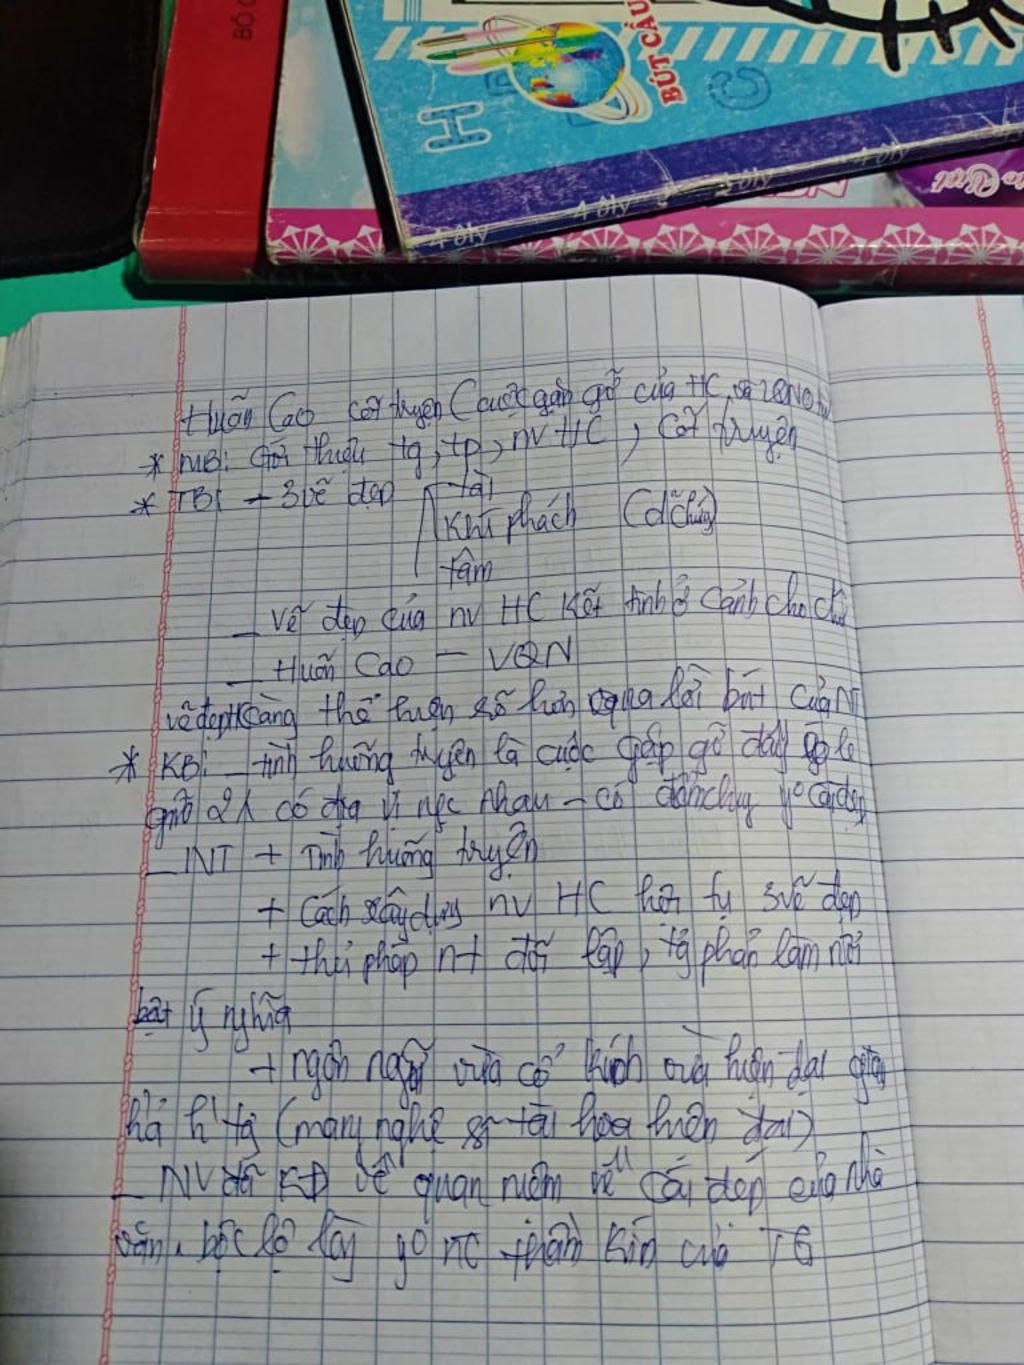 BỘ G
BÚT CẦU
H
4 ôly
4 ôly
4 ôly
4 ôly
Huấn Cao cốt truyện (cuộc gặp gỡ của HC và VQN
* MB: Giới thiệu tg, tp, nv HC, Cốt truyện
* TB: - 3 vẽ đẹp tài
khí phách (dẫn chứng)
tâm
_ vẽ đẹp của nv HC kết tinh ở cảnh cho chữ
_ Huấn Cao - VQN
vẽ đẹp HC càng thể hiện rõ hơn qua lời bút của NT
* KB: _ tình huống truyện là cuộc gặp gỡ đầy
giữa 2 có địa vị ngc nhau - có điểm chung yo cái đẹp
_ NT + Tình huống truyện
+ Cách xây dựng nv HC hội tụ 3 vẽ đẹp
+ thủ pháp nt đối lập, tg phản làm nổi
bật ý nghĩa
+ ngôn ngữ vừa cổ kính vừa hiện đại
(mang nghệ sĩ tài hoa hiện đại)
_ NV đã KĐ về quan niệm về cái đẹp của nhà
văn, bộc lộ lòng yo nc thầm kín của TG